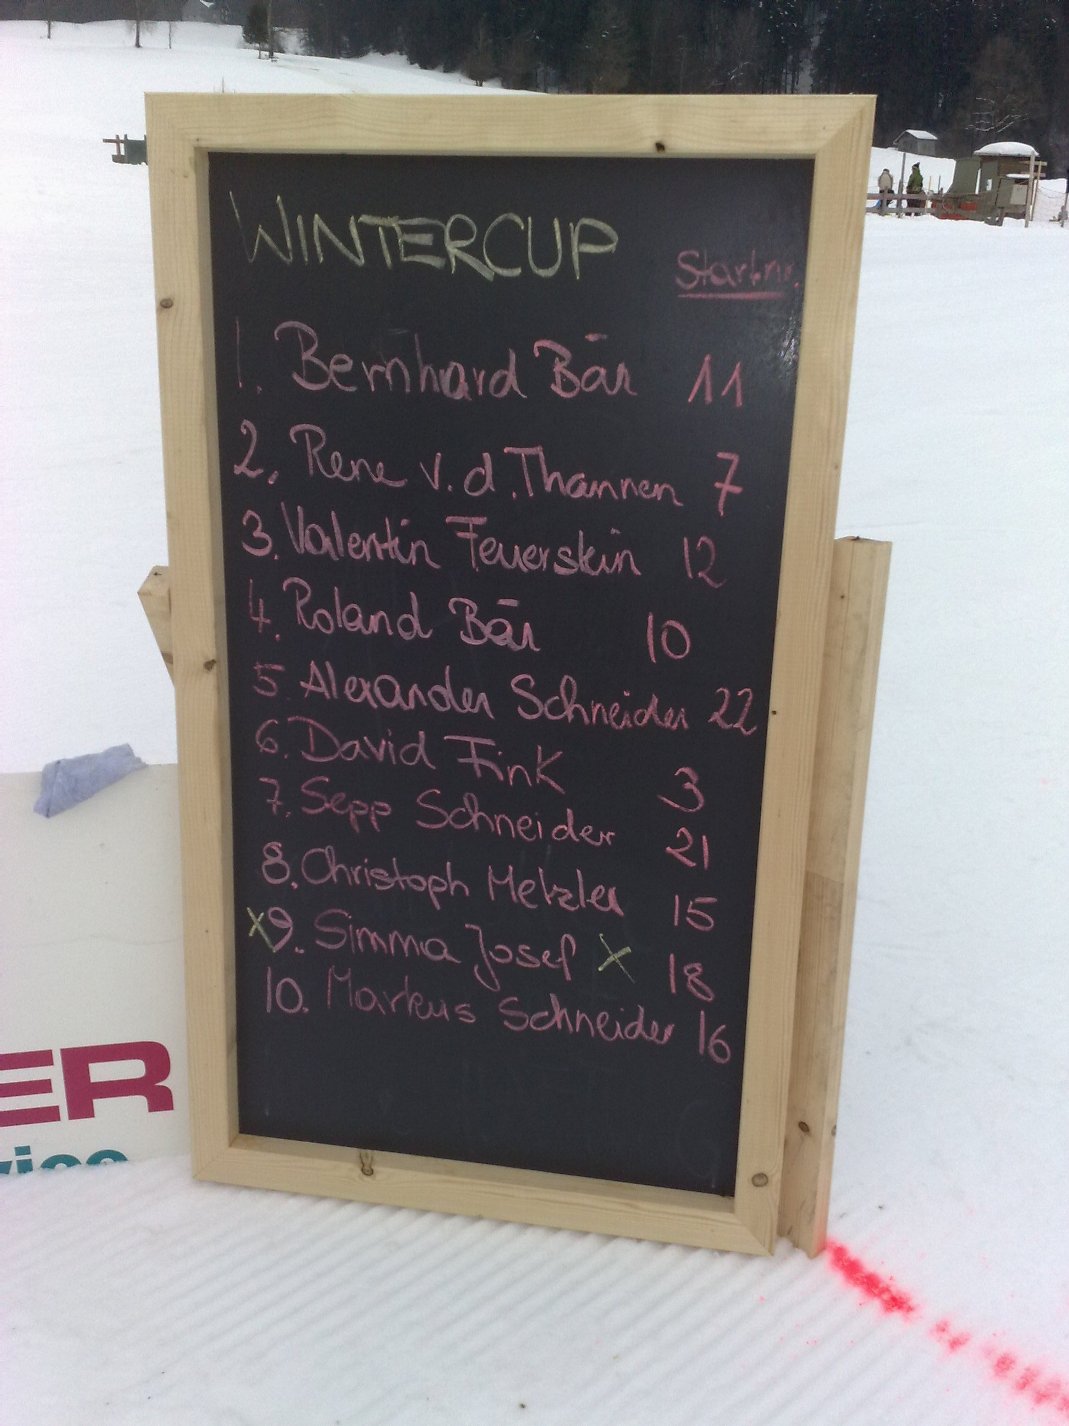 WINTERCUP
Startnr.
1. Bernhard Bär 11
2. Rene v.d. Thannen 7
3. Valentin Feuerstein 12
4. Roland Bär 10
5. Alexander Schneider 22
6. David Fink 3
7. Sepp Schneider 21
8. Christoph Metzler 15
x9. Simma Josef x 18
10. Markus Schneider 16
ER